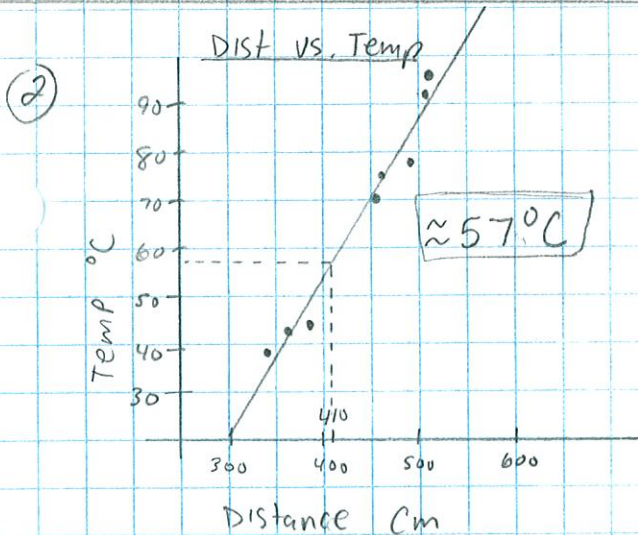 Dist vs. Temp
②
90
80
70
≈57°C
60
50
40
30
Temp °C
410
300 400 500 600
Distance Cm